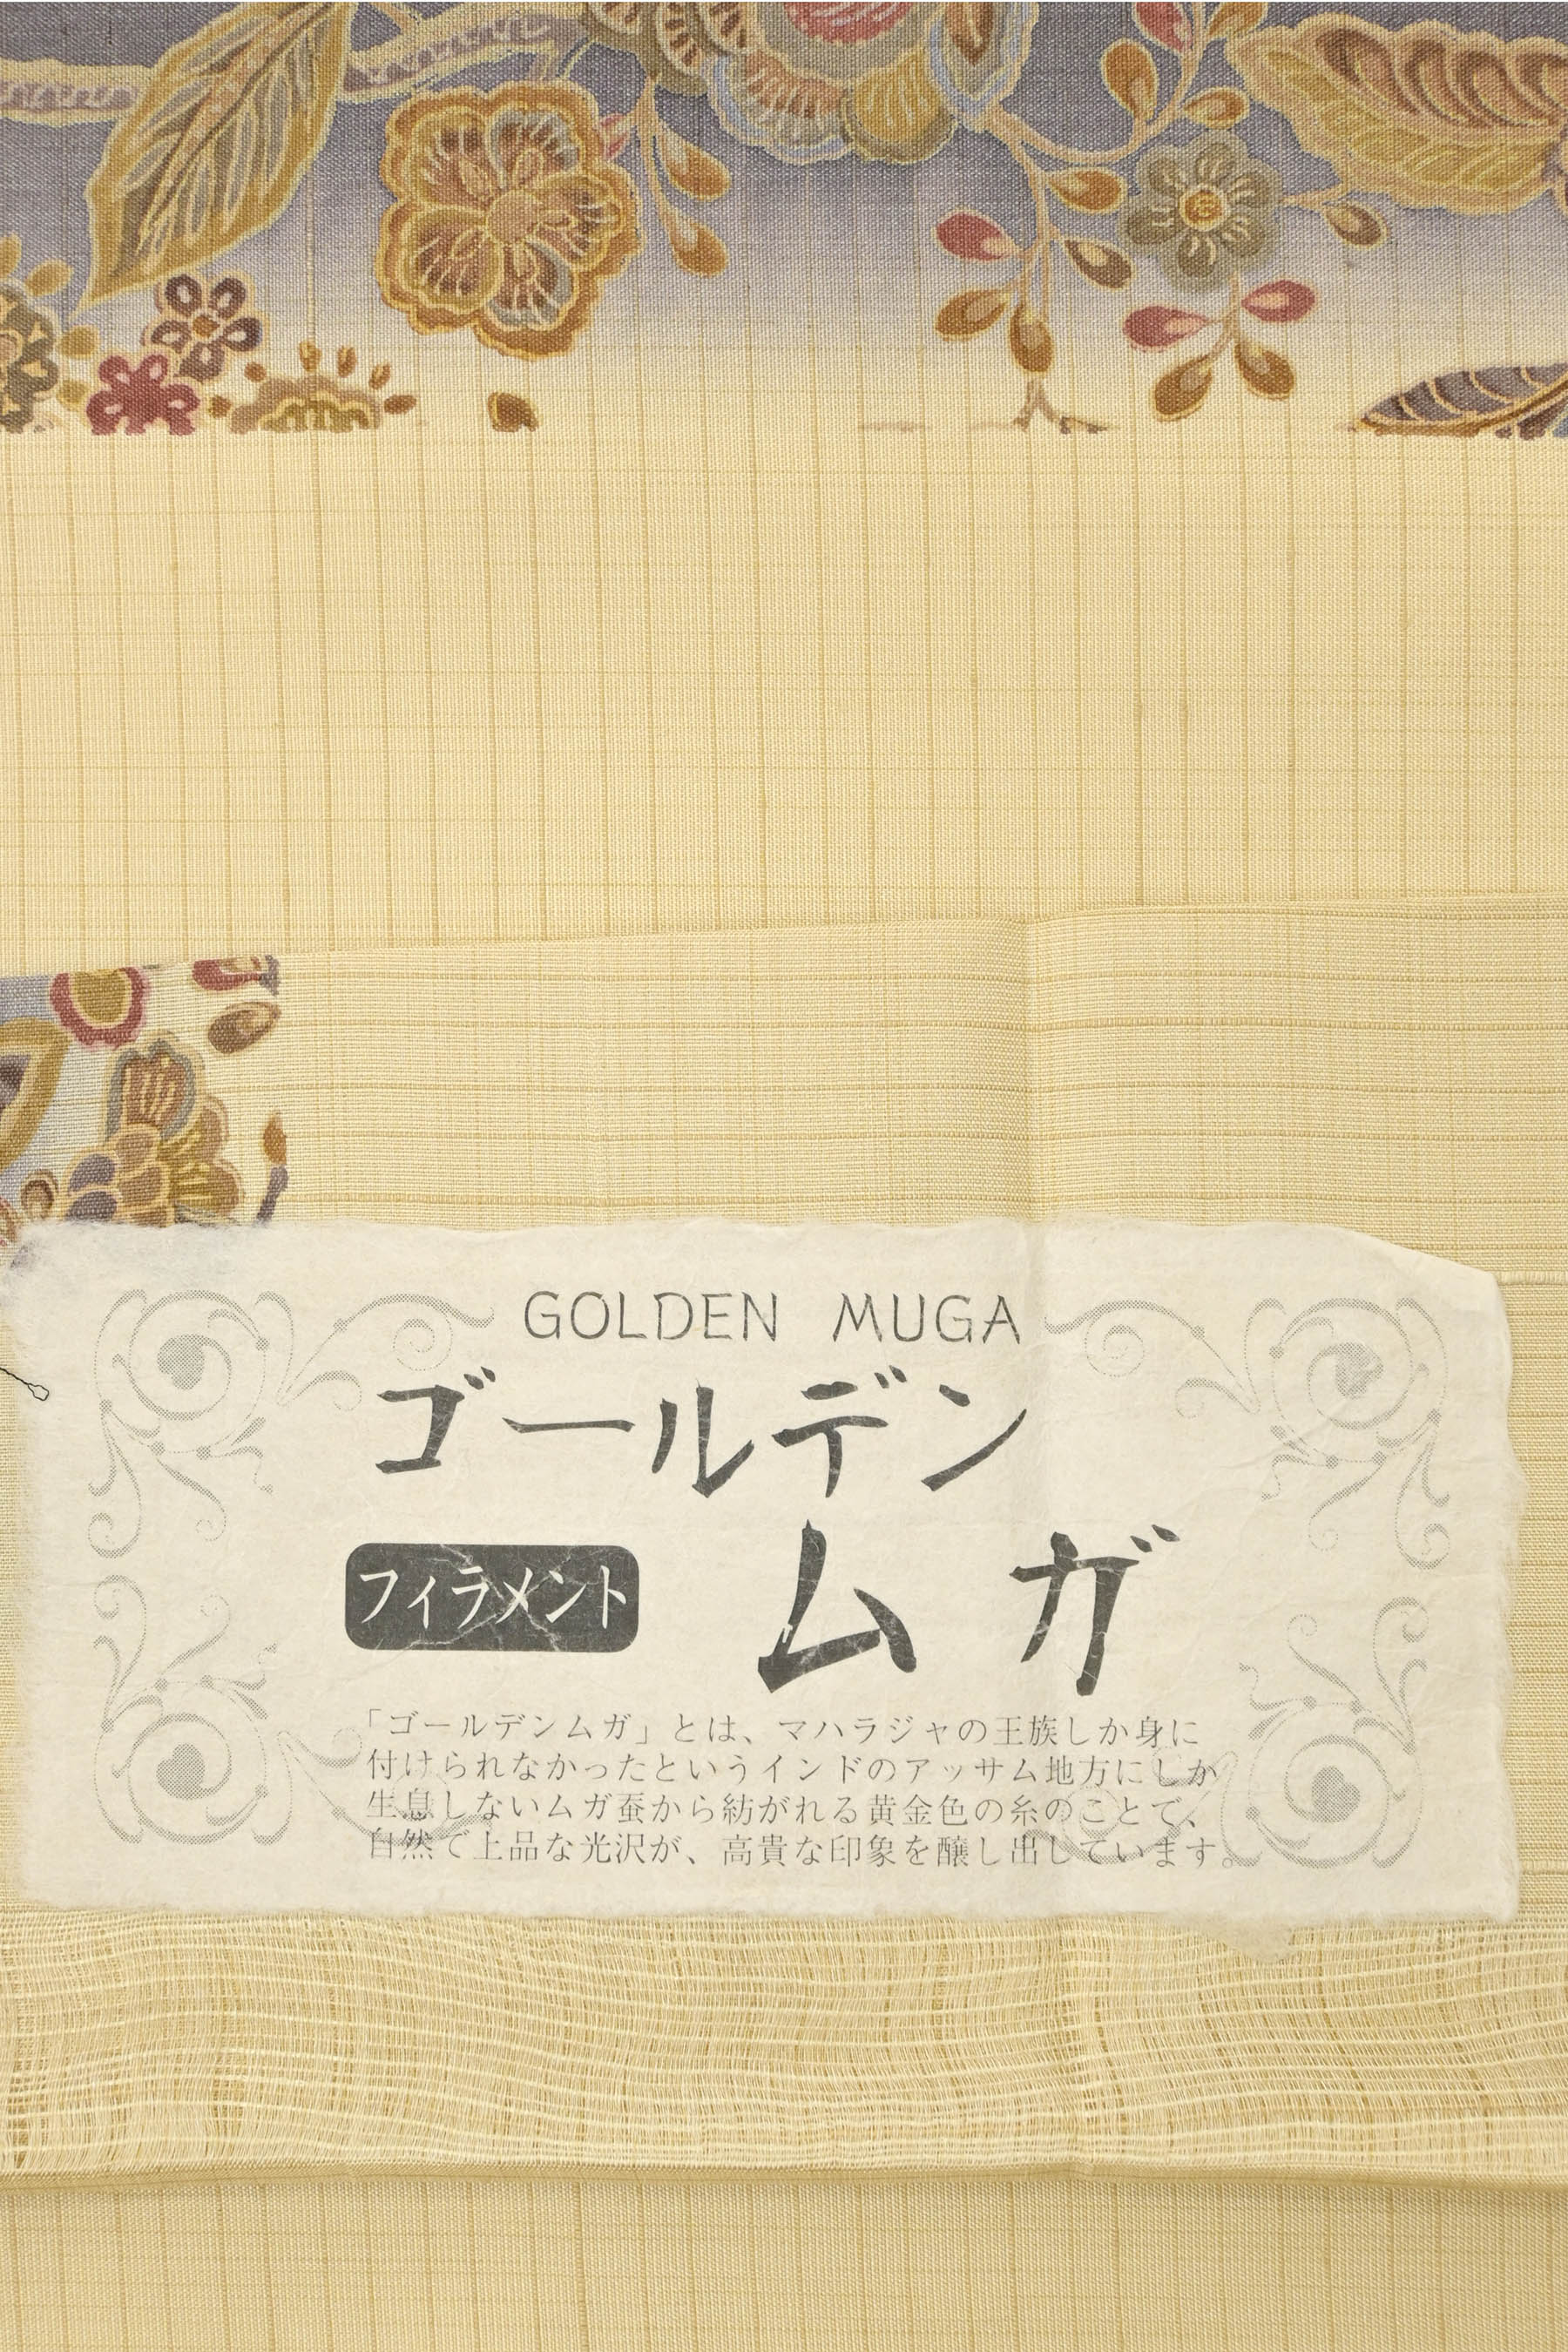 GOLDEN MUGA
ゴールデン
フィラメント ムガ
「ゴールデンムガ」とは、マハラジャの王族しか身に
付けられなかったというインドのアッサム地方にしか
生息しないムガ蚕から紡がれる黄金色の糸のことで、
自然で上品な光沢が、高貴な印象を醸し出しています。